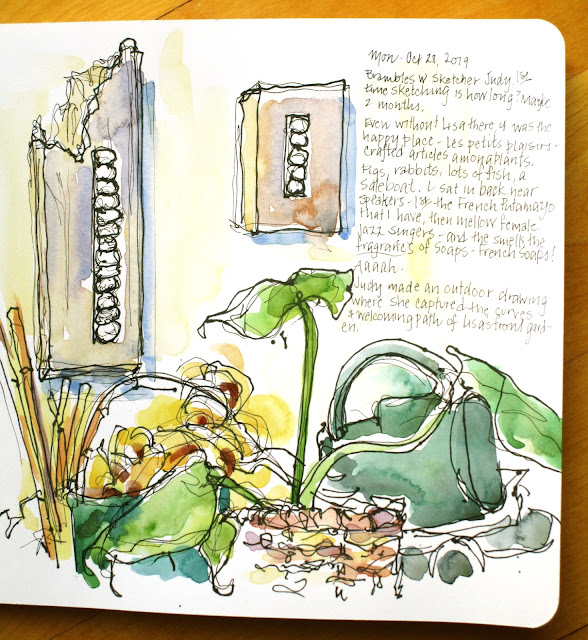 Mon. Oct 28, 2019
Brambles w Sketcher Judy. 1st
time sketching is how long? Maybe
2 months.
Even without Lisa there, it was the
happy place - les petits plaisirs -
crafted articles among plants.
Figs, rabbits, lots of fish, a
sailboat. I sat in back near
speakers - 1st the French Putumayo
that I have, then mellow female
jazz singers - and the smells the
fragrances of soaps - french soaps!
Aaaah.
Judy made an outdoor drawing
where she captured the curves
& welcoming path of Lisa's front gard-
en.